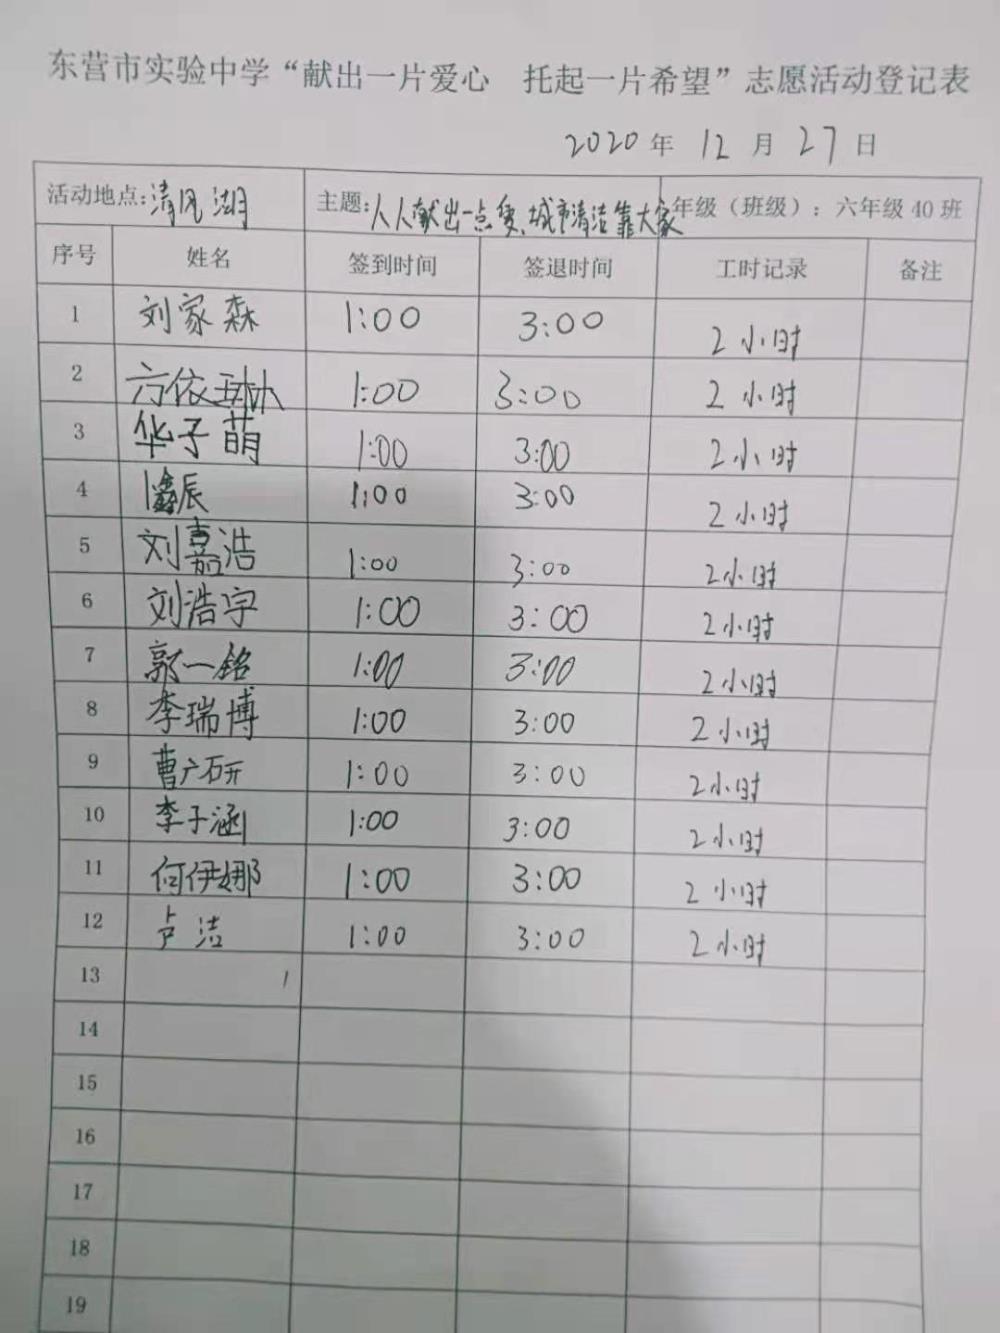 东营市实验中学“献出一片爱心 托起一片希望”志愿活动登记表
2020 年 12 月 27 日
活动地点:清风湖 主题:人人献出一点爱、城市清洁靠大家 年级（班级）：六年级 40 班
序号 姓名 签到时间 签退时间 工时记录 备注
1 刘家森 1:00 3:00 2小时
2 方依琳 1:00 3:00 2小时
3 华子萌 1:00 3:00 2小时
4 辰 1:00 3:00 2小时
5 刘嘉浩 1:00 3:00 2小时
6 刘浩宇 1:00 3:00 2小时
7 郭一铭 1:00 3:00 2小时
8 李瑞博 1:00 3:00 2小时
9 曹广研 1:00 3:00 2小时
10 李子涵 1:00 3:00 2小时
11 何伊娜 1:00 3:00 2小时
12 卢洁 1:00 3:00 2小时
13
14
15
16
17
18
19